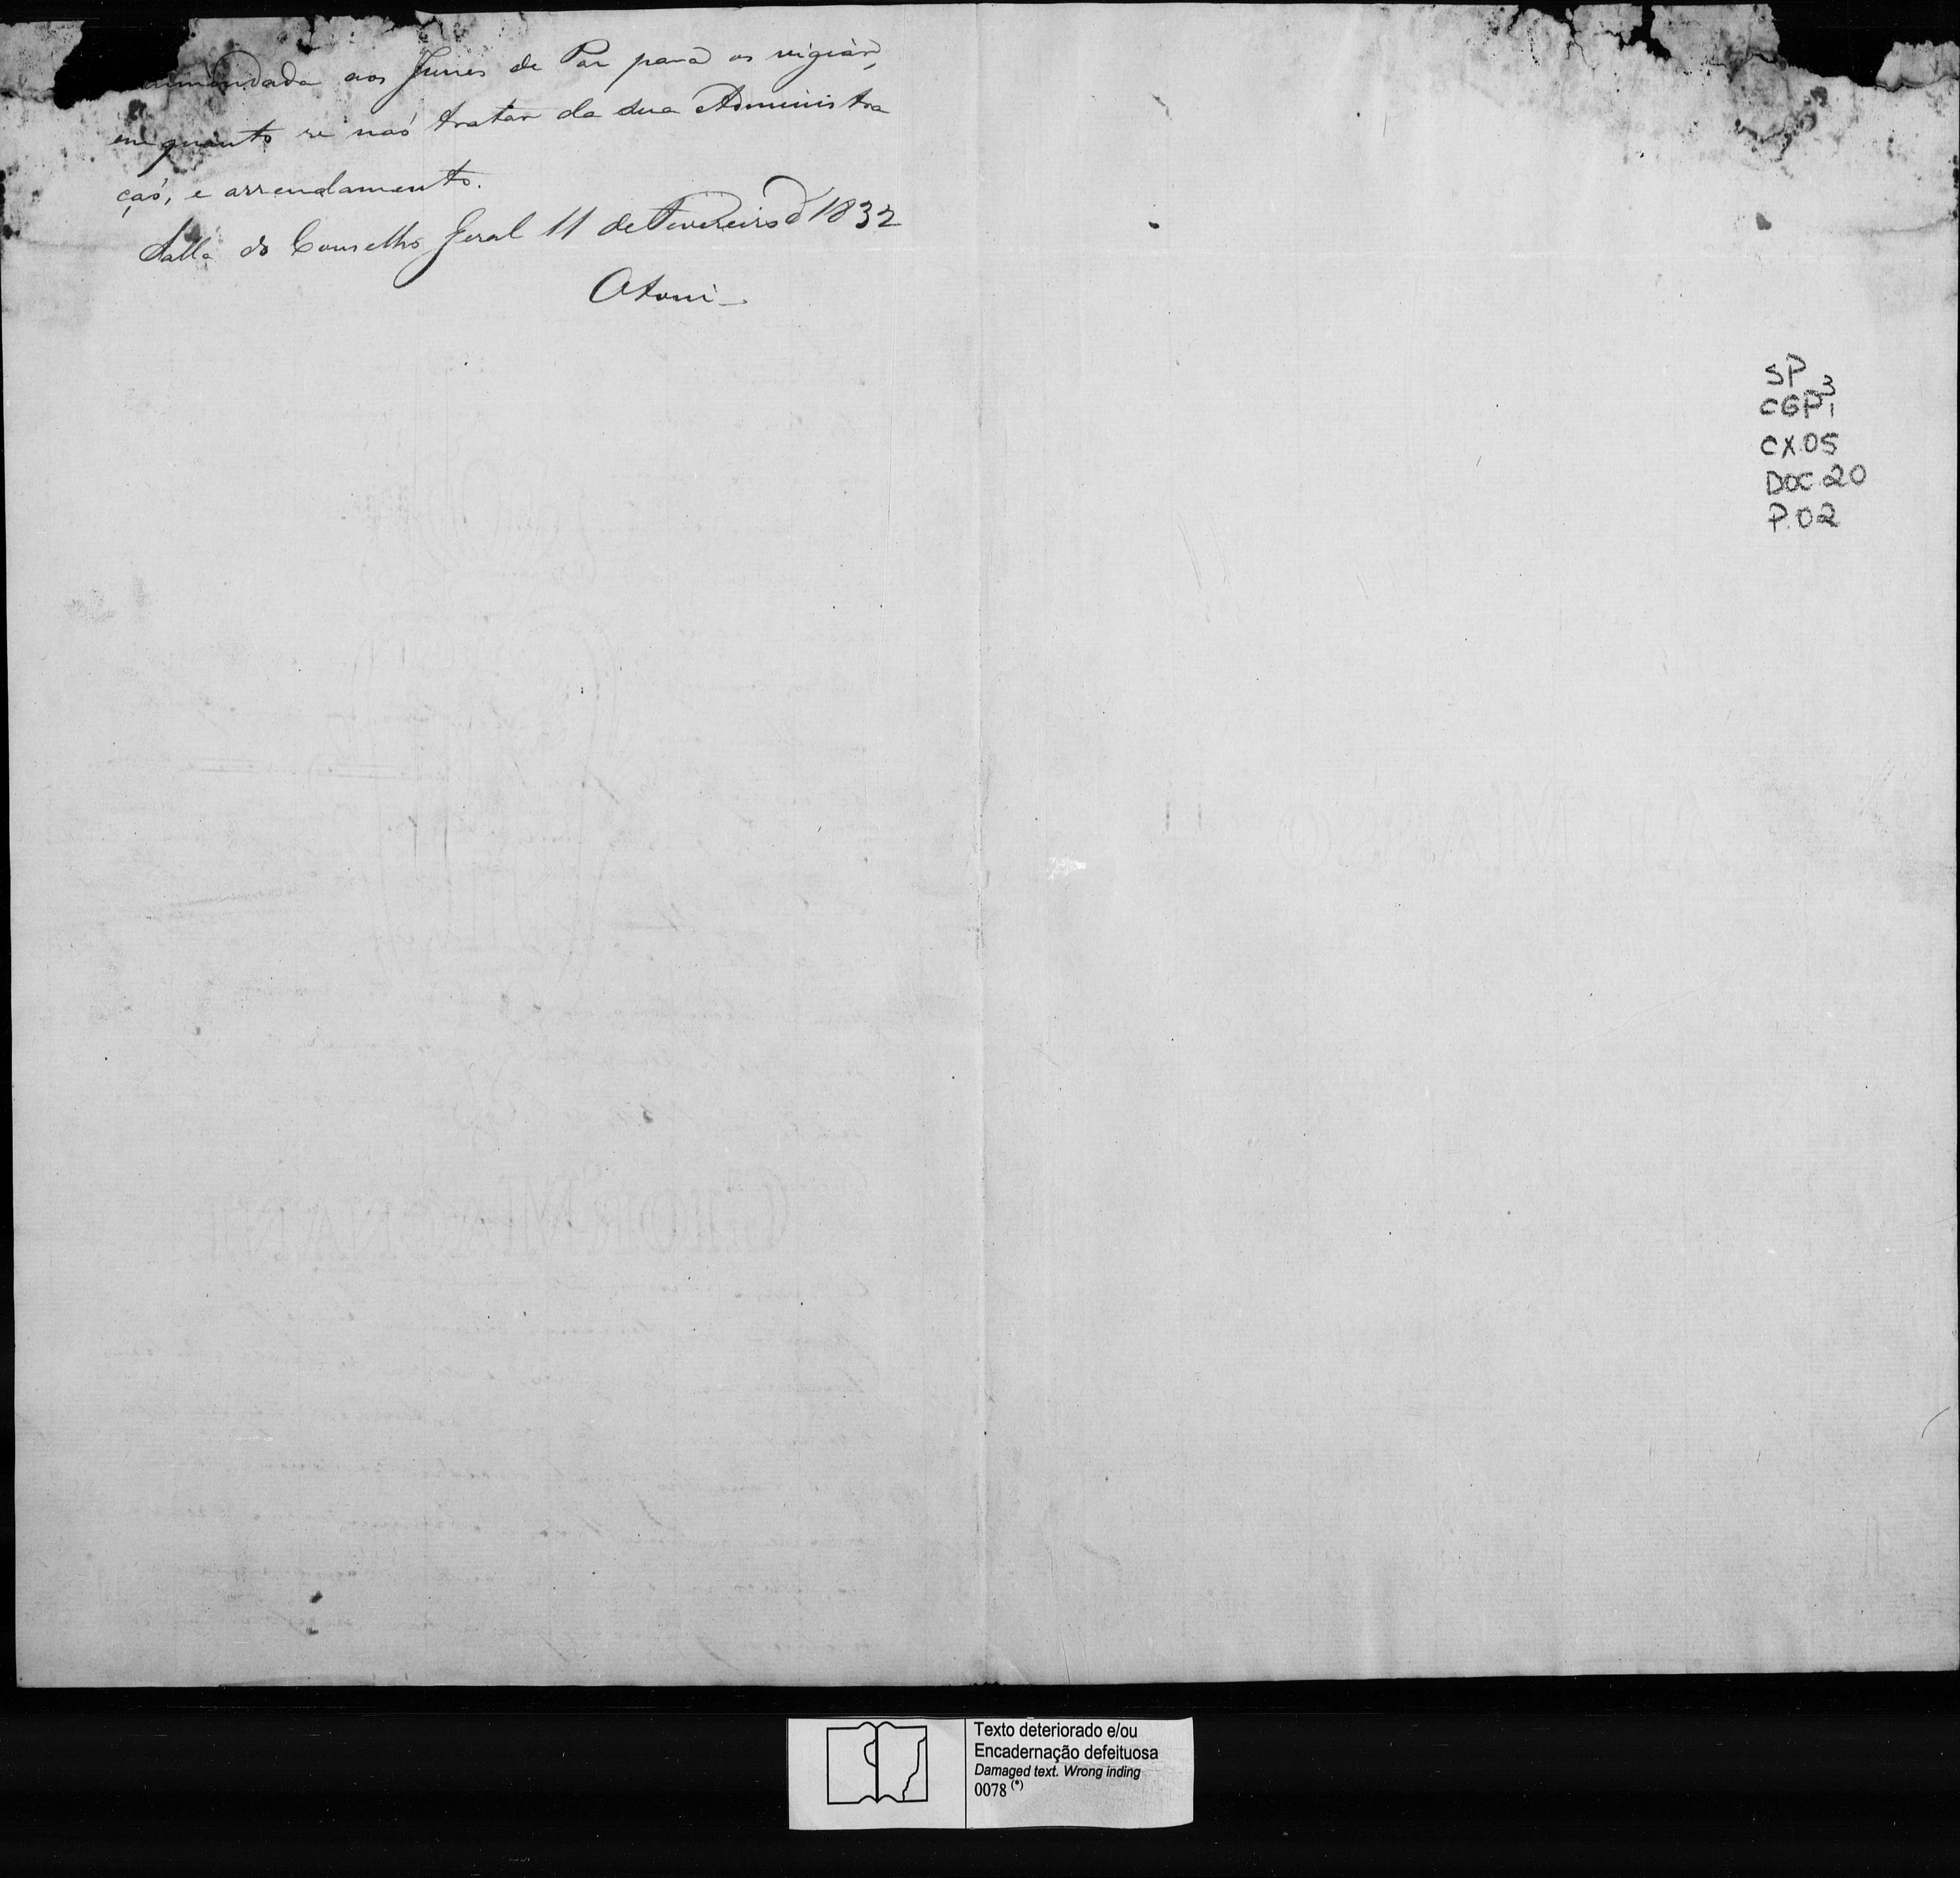 ommendada aos Juizes de Paz para os vigiar,
em quanto se naõ tratar da sua Administra
çaõ, e arrendamento.
Salla do Conselho Geral 11 de Fevereiro d 1832
Otoni
SP
CGP1 3
CX.05
DOC.20
P.02
AL MASSO
GIOR MAGNANI
Texto deteriorado e/ou
Encadernação defeituosa
Damaged text. Wrong inding
0078 (*)